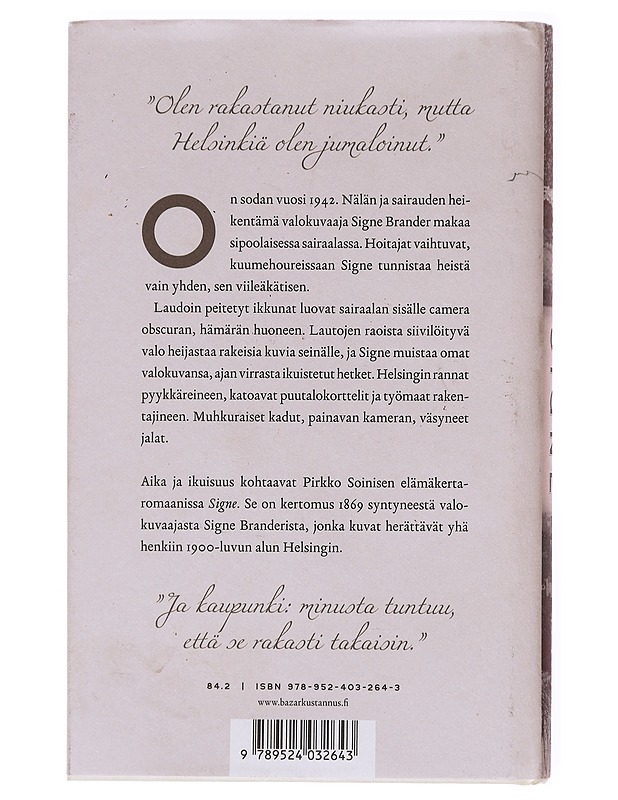 ”Olen rakastanut niukasti, mutta
Helsinkiä olen jumaloinut.”
On sodan vuosi 1942. Nälän ja sairauden hei-
kentämä valokuvaaja Signe Brander makaa
sipoolaisessa sairaalassa. Hoitajat vaihtuvat,
kuumehoureissaan Signe tunnistaa heistä
vain yhden, sen viileäkätisen.
Laudoin peitetyt ikkunat luovat sairaalan sisälle camera
obscuran, hämärän huoneen. Lautojen raoista siivilöityvä
valo heijastaa rakeisia kuvia seinälle, ja Signe muistaa omat
valokuvansa, ajan virrasta ikuistetut hetket. Helsingin rannat
pyykkäreineen, katoavat puutalokorttelit ja työmaat raken-
tajineen. Muhkuraiset kadut, painavan kameran, väsyneet
jalat.
Aika ja ikuisuus kohtaavat Pirkko Soinisen elämäkerta-
romaanissa Signe. Se on kertomus 1869 syntyneestä valo-
kuvaajasta Signe Branderista, jonka kuvat herättävät yhä
henkiin 1900-luvun alun Helsingin.
”Ja kaupunki: minusta tuntuu,
että se rakasti takaisin.”
84.2 | ISBN 978-952-403-264-3
www.bazarkustannus.fi
9 789524 032643